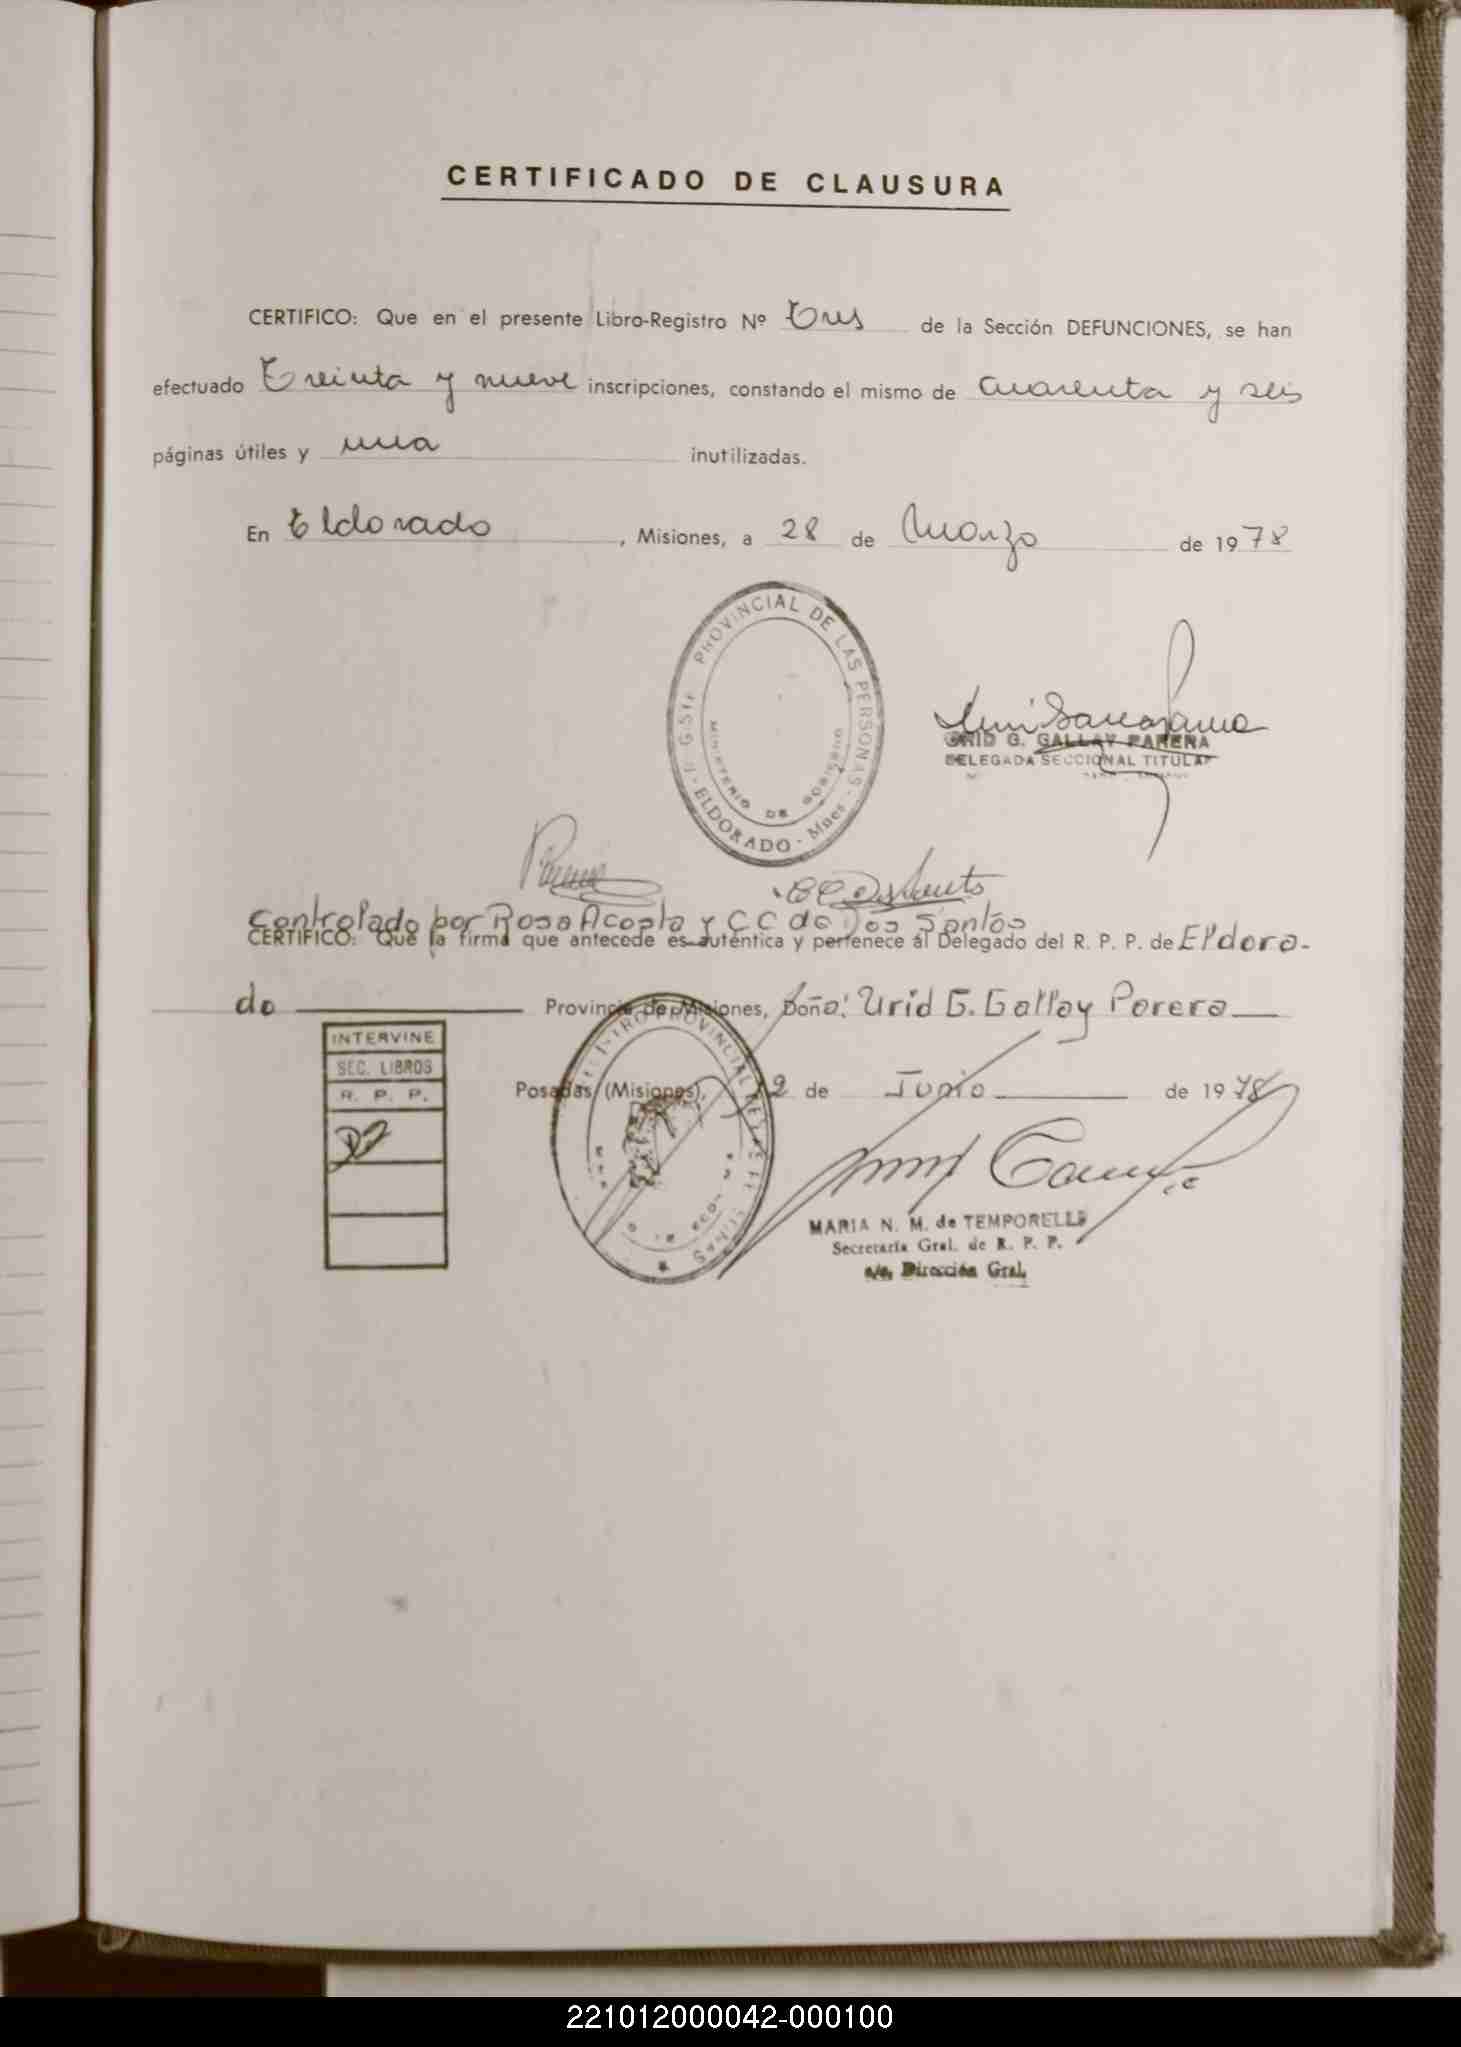 CERTIFICADO DE CLAUSURA
CERTIFICO: Que en el presente Libro-Registro Nº tres de la Sección DEFUNCIONES, se han
efectuado treinta y nueve inscripciones, constando el mismo de cuarenta y seis
páginas útiles y una inutilizadas.
En Eldorado, Misiones, a 28 de Marzo de 1978
PROVINCIAL DE LAS PERSONAS - Mnes - ELDORADO
MINISTERIO DE GOBIERNO
URID G. GALLAY PARERA
DELEGADA SECCIONAL TITULAR
Controlado por Rosa Acosta y CC de Dos Santos
CERTIFICO: Que la firma que antecede es auténtica y pertenece al Delegado del R. P. P. de Eldora-
do Provincia de Misiones, Doña: Urid G. Gallay Parera
INTERVINE
SEC. LIBROS
R. P. P.
Posadas (Misiones), 12 de Junio de 1978
MARIA N. M. de TEMPORELLI
Secretaría Gral. de R. P. P.
a/c. Dirección Gral.
221012000042-000100